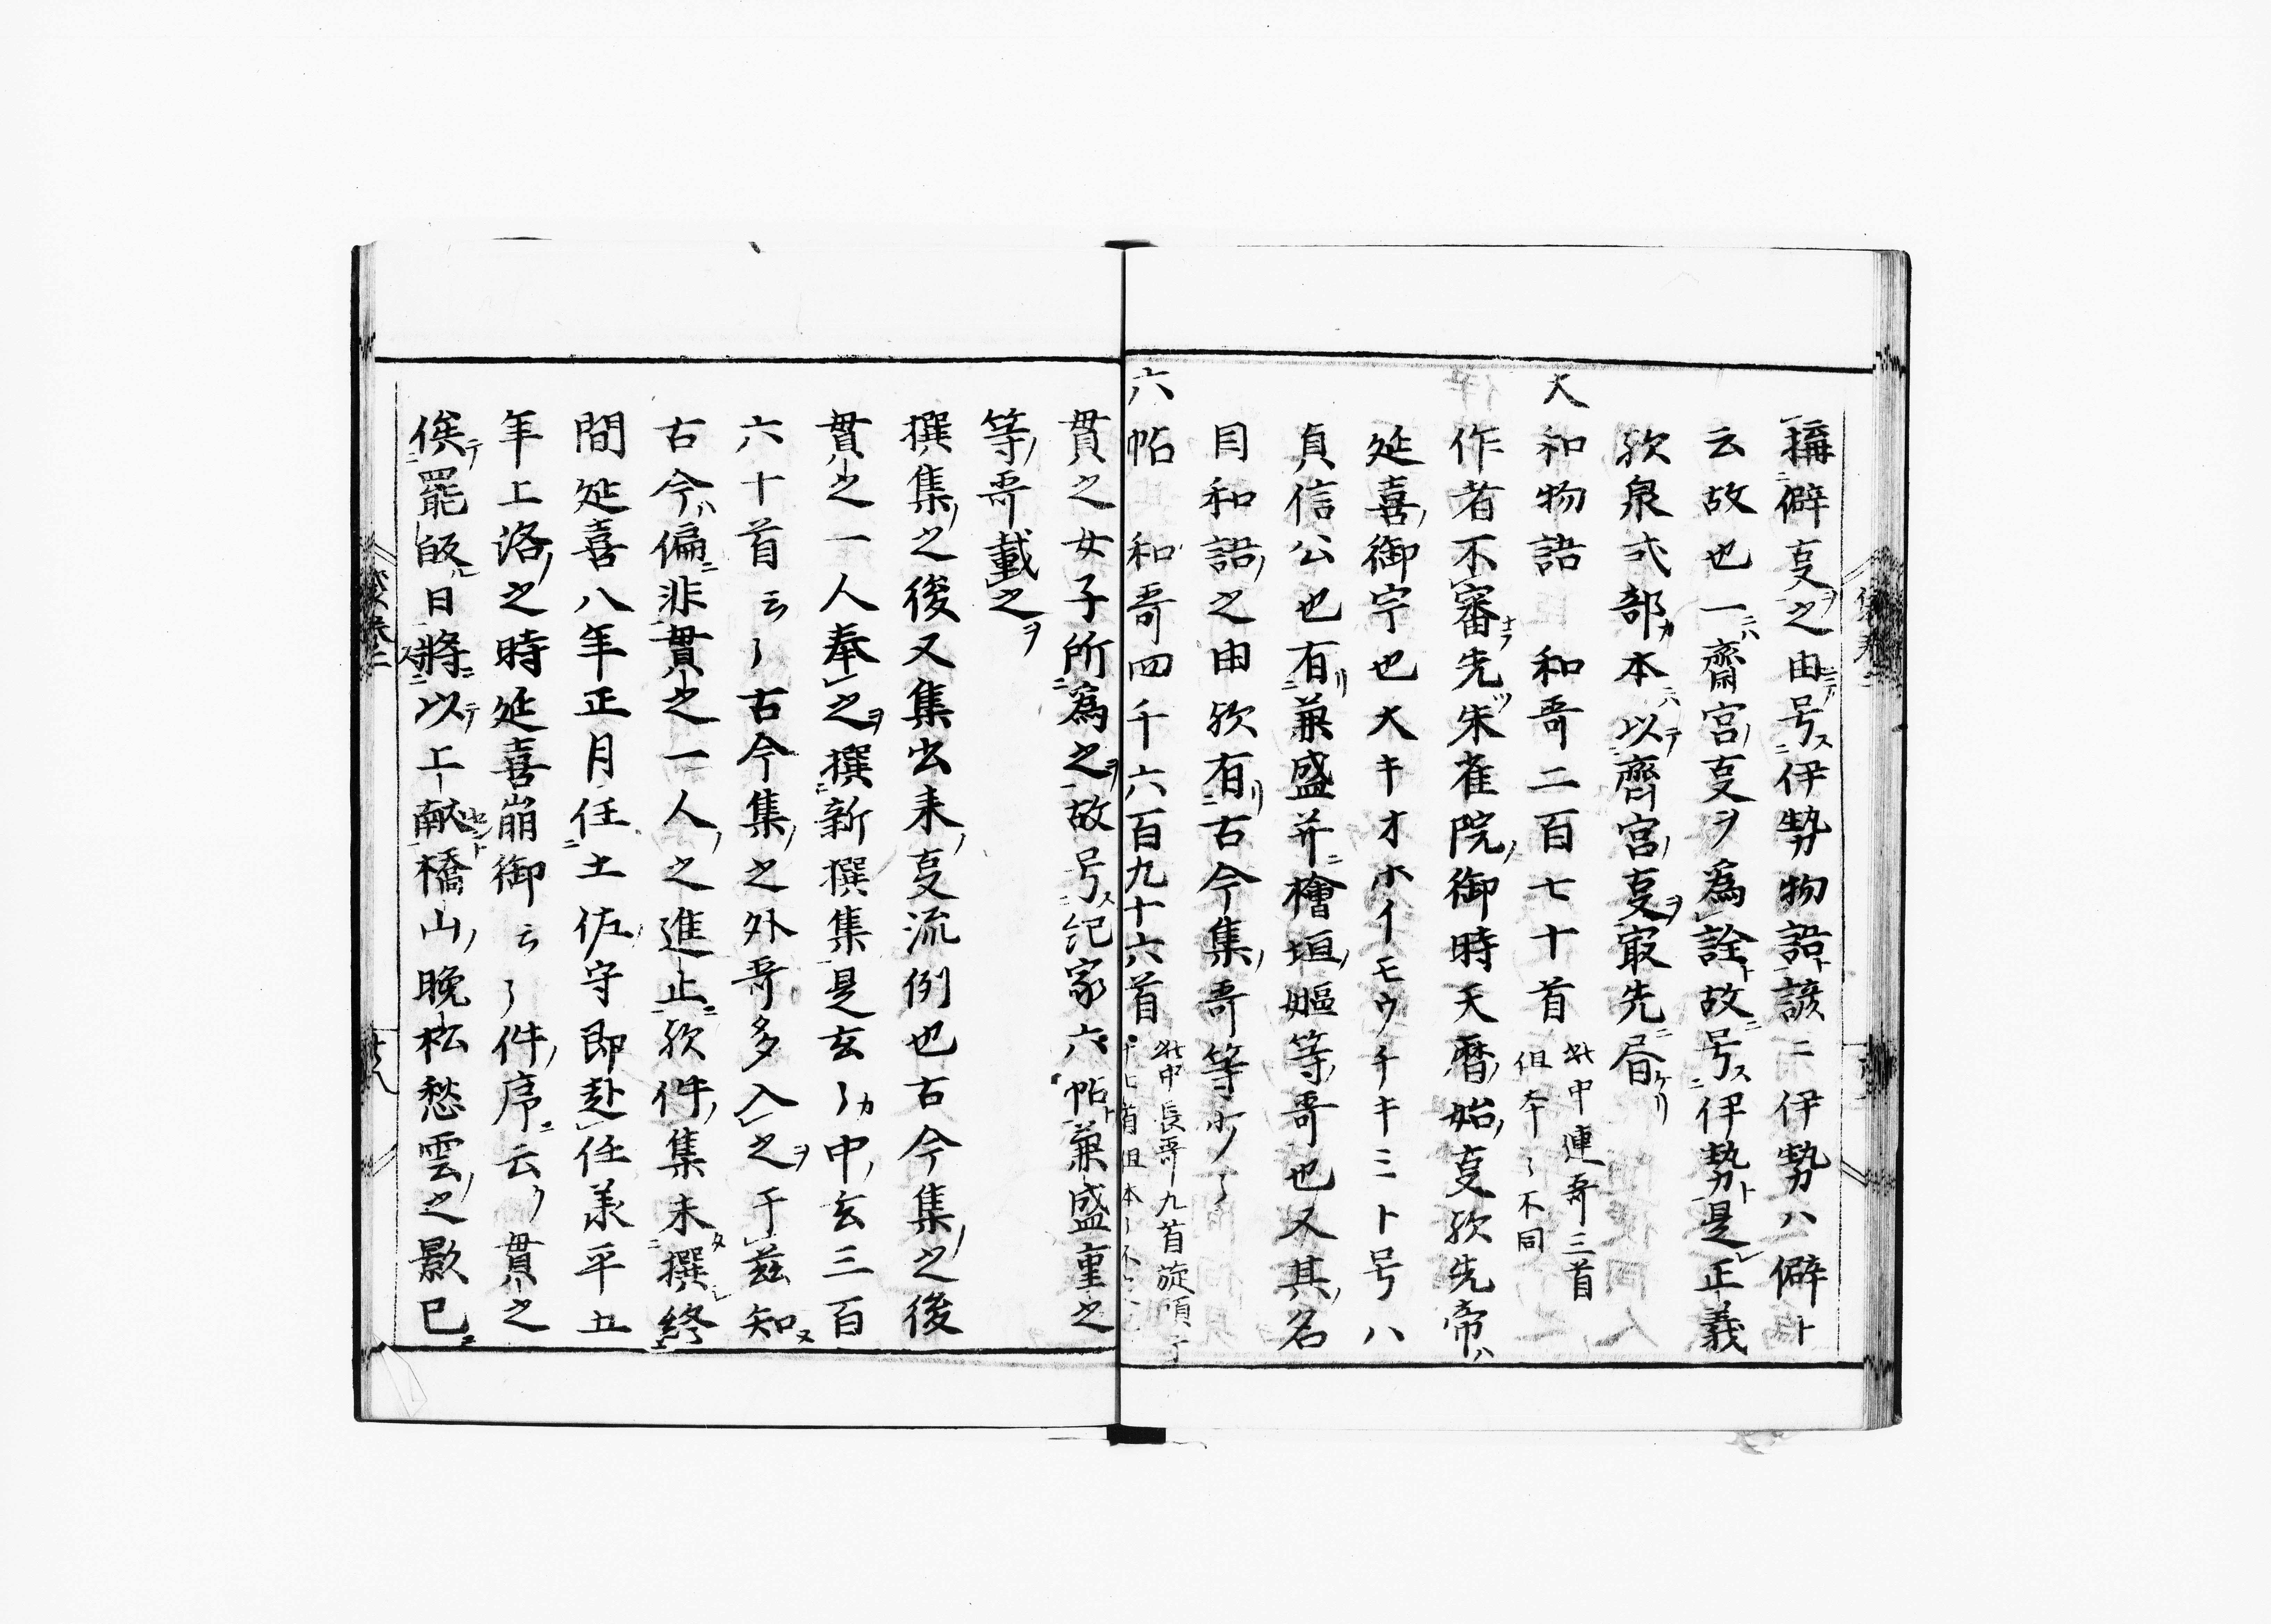 稱僻㕝之由号伊勢物語諺ニ伊勢ハ僻ト
云故也一齋宮㕝ヲ爲詮故号伊勢是正義
欤泉式部本以齊宮㕝㝡先居
大和物語 和哥二百七十首 此中連哥三首但本〻不同
作者不審先朱雀院御時天暦始㕝欤先帝ハ
延喜御宇也大キオホイモウチキミト号ハ
貞信公也有兼盛并檜垣嫗等哥也又其名
目和語之由欤有古今集哥等少〻
六帖 和哥四千六百九十六首 此中長哥九首旋頭
貫之女子所爲之故号紀家六帖兼盛重之
等哥載之
撰集之後又集出来㕝流例也古今集之後
貫之一人奉之撰新撰集是玄〻中玄三百
六十首云〻古今集之外哥多入之于玆知
古今偏非貫之一人之進止欤件集未撰終
間延喜八年正月任土佐守即赴任羕平五
年上洛之時延喜崩御云〻件序云貫之
俟罷皈日将以上献橋山晩松愁雲之影已